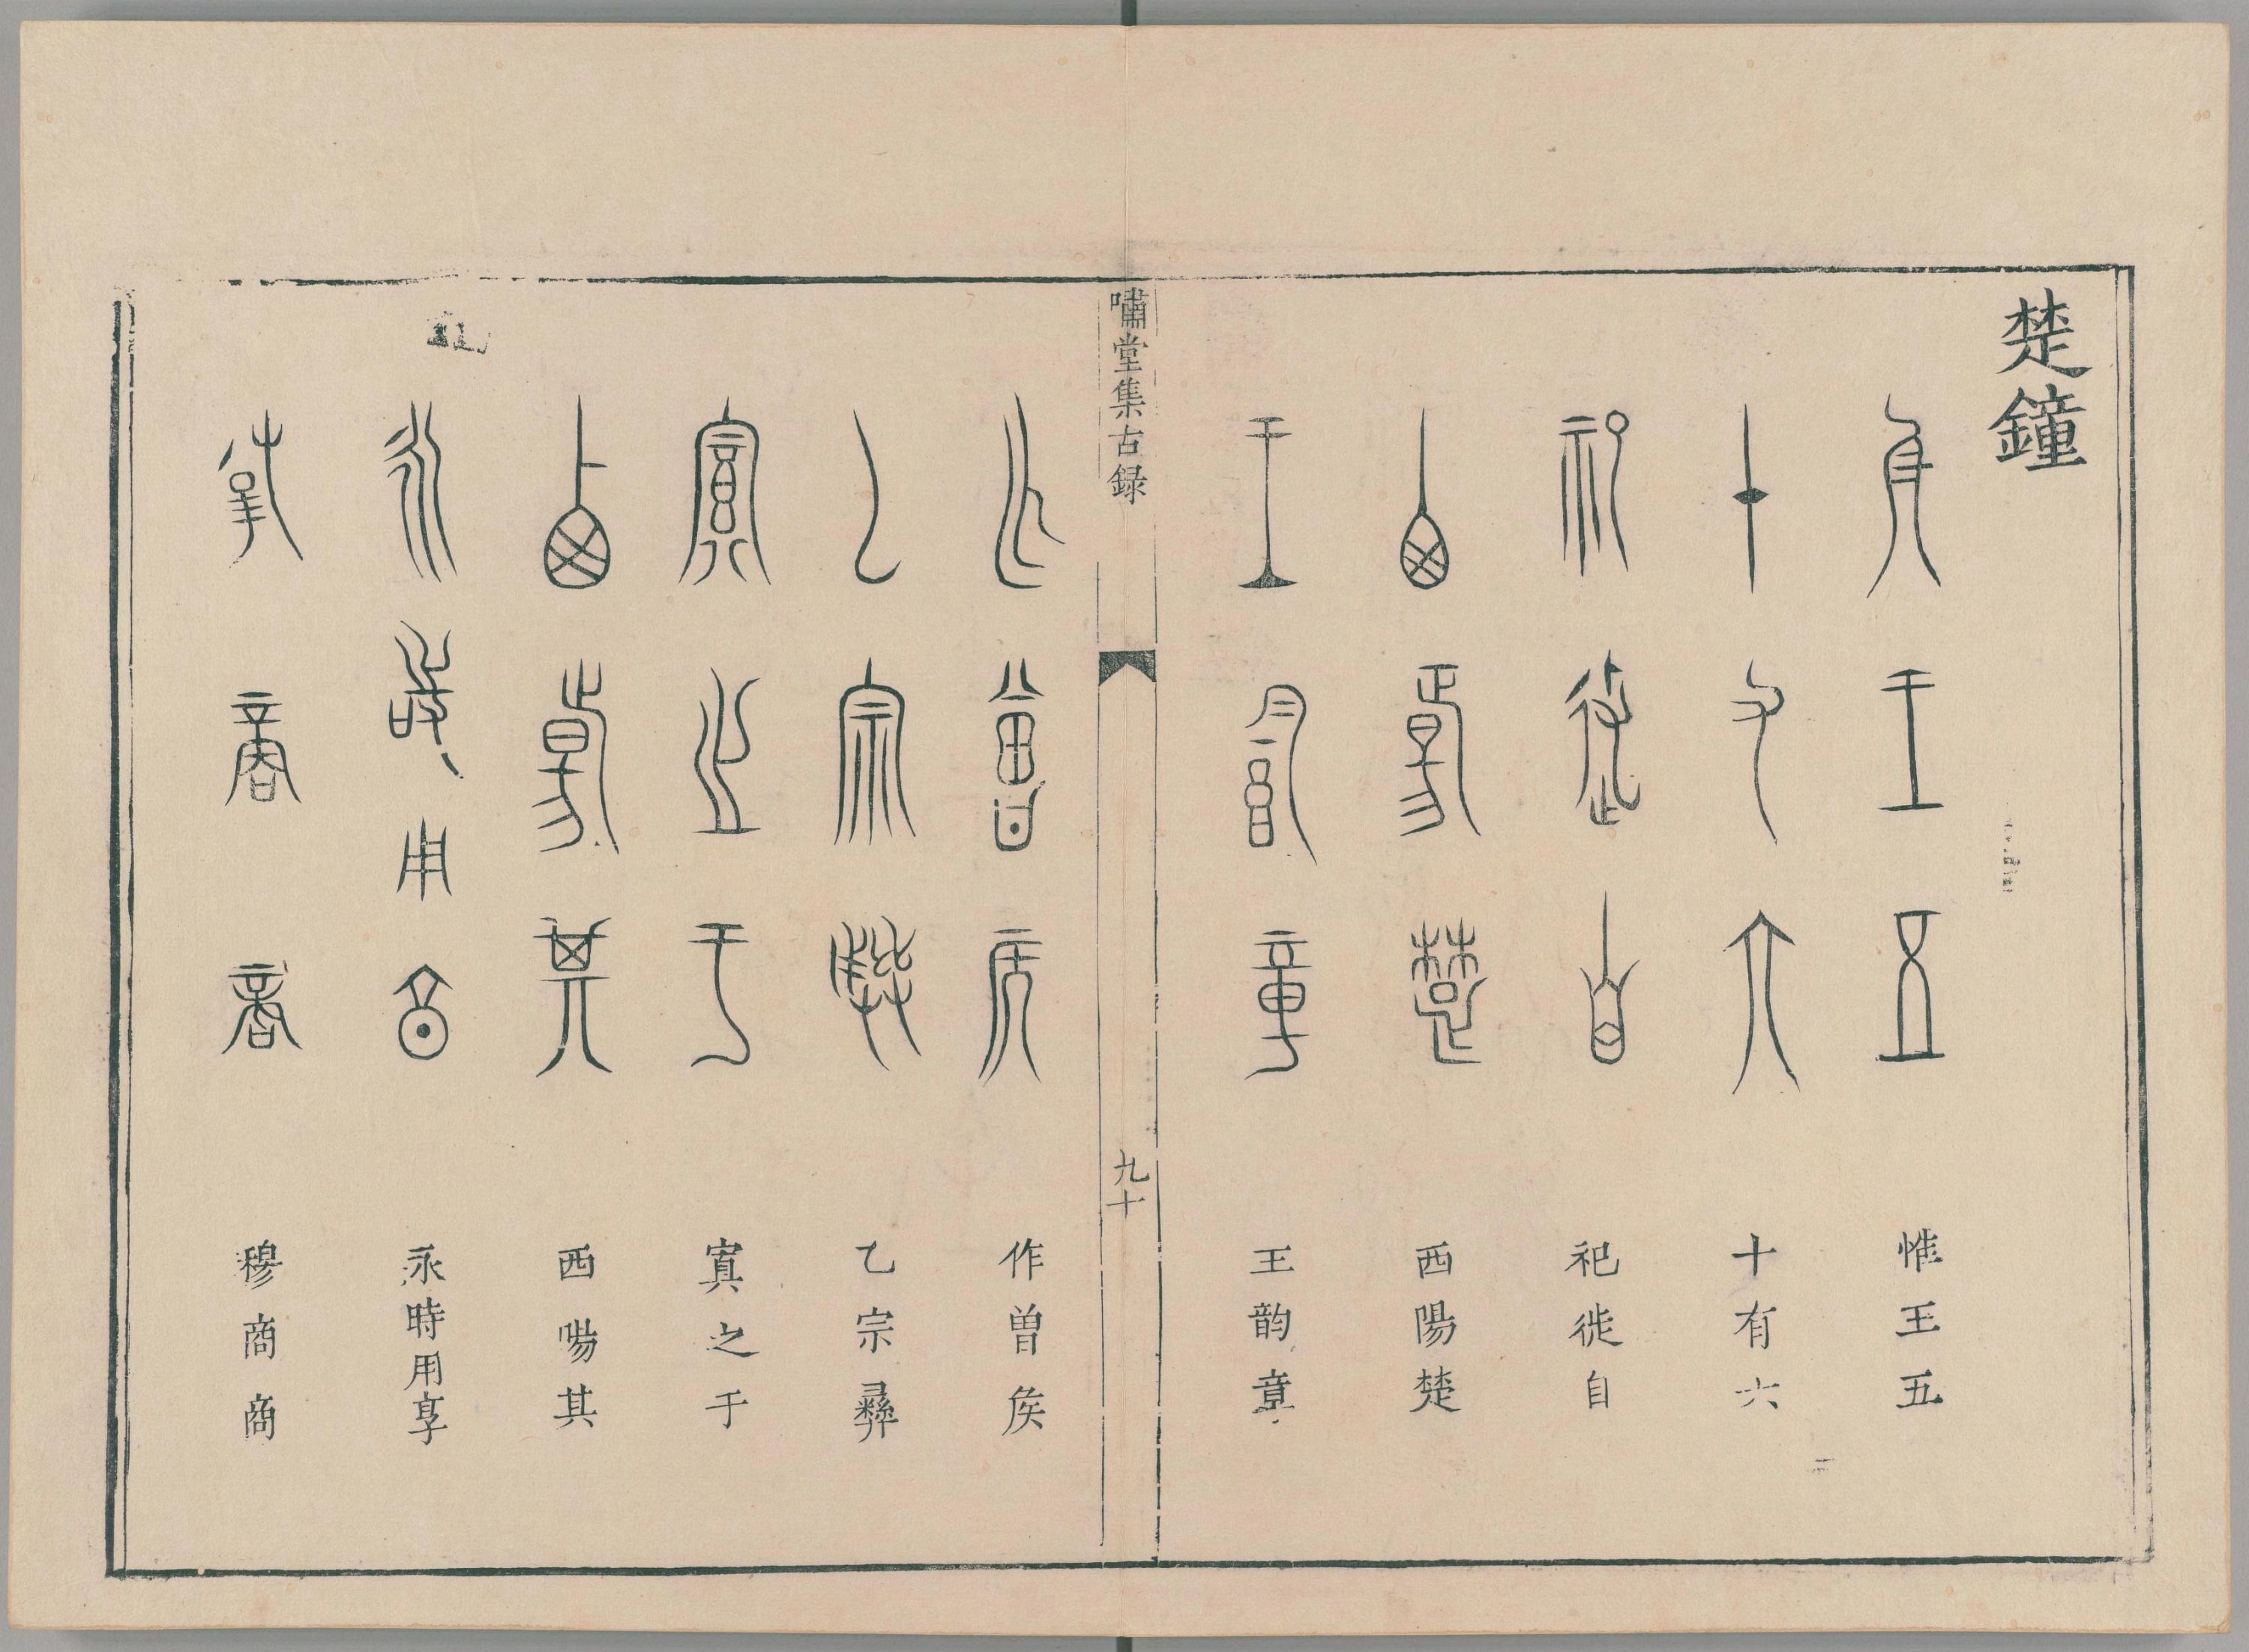 楚鐘
惟王五
十有六
祀徙自
西陽楚
王韵章
嘯堂集古録
九十
作曽矦
乙宗彞
寘之于
西昜其
永時用享
穆商商